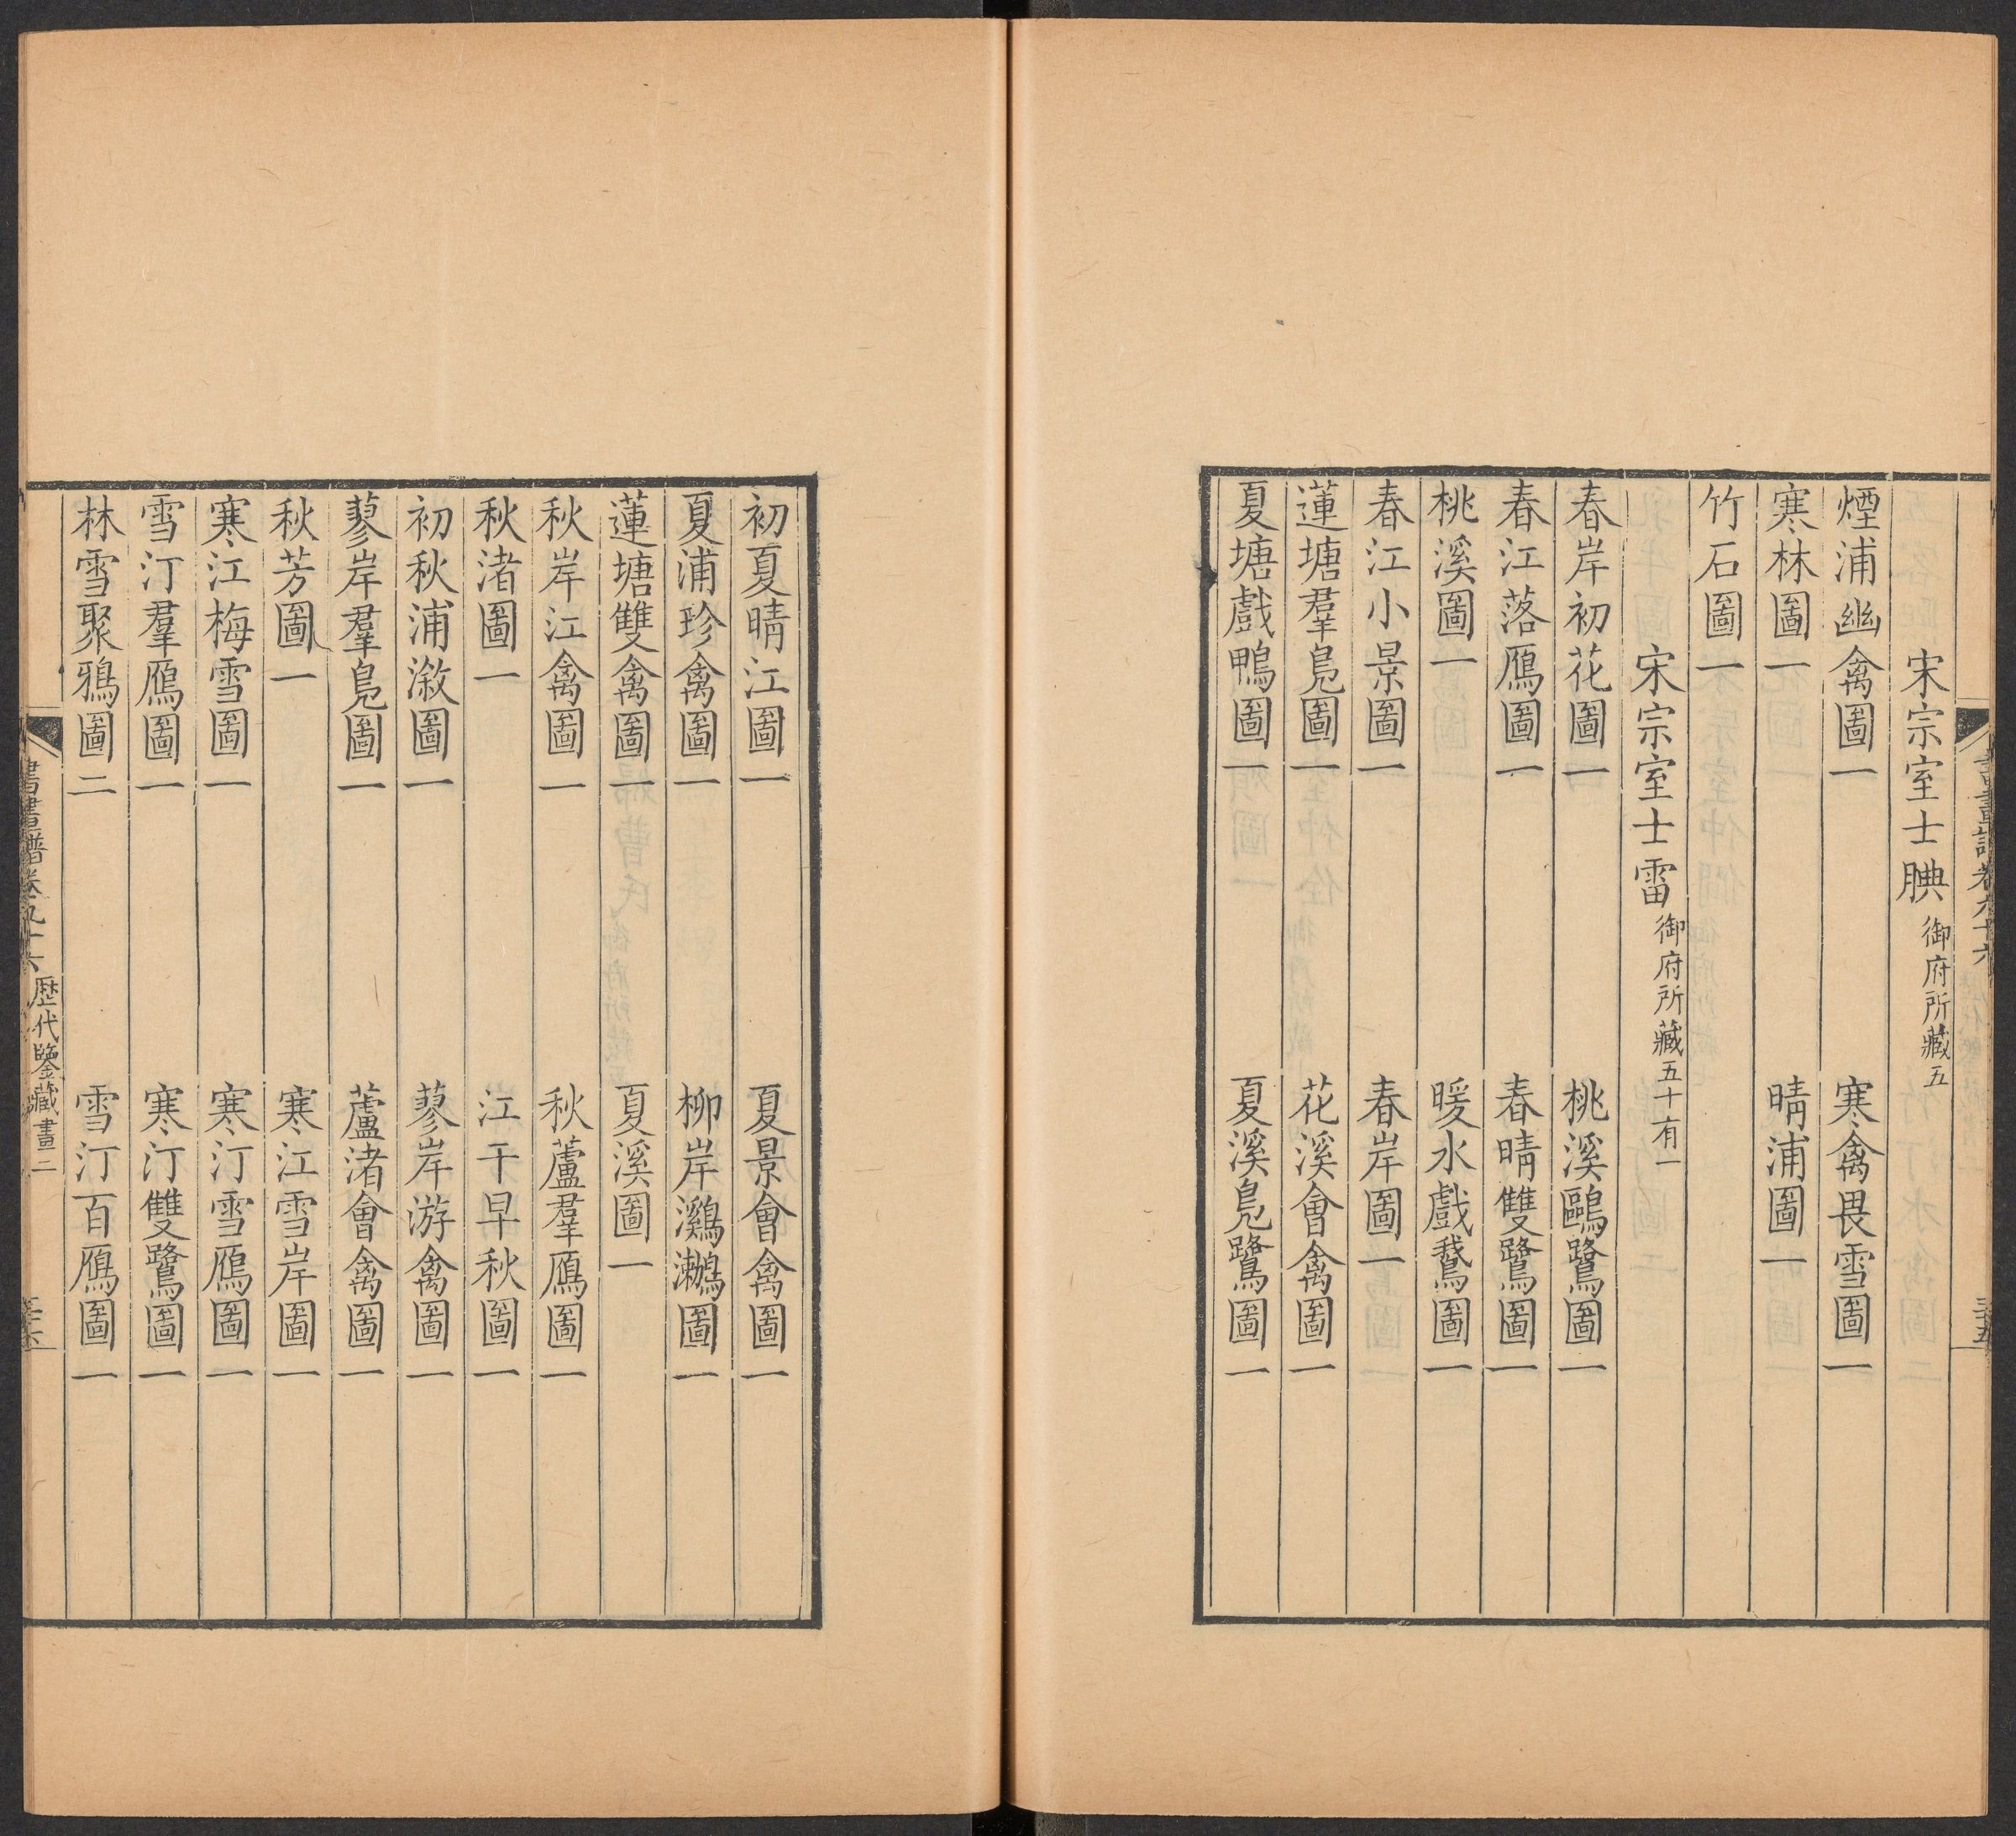 宋宗室士腆 御府所藏五
煙浦幽禽圖一 寒禽畏雪圖一
寒林圖一 晴浦圖一
竹石圖一
宋宗室士雷 御府所藏五十有一
春岸初花圖一 桃溪鷗鷺圖一
春江落鴈圖一 春晴雙鷺圖一
桃溪圖一 暖水戲鵞圖一
春江小景圖一 春岸圖一
蓮塘羣鳧圖一 花溪會禽圖一
夏塘戲鴨圖一 夏溪鳧鷺圖一
初夏晴江圖一 夏景會禽圖一
夏浦珍禽圖一 柳岸鸂鷘圖一
蓮塘雙禽圖一 夏溪圖一
秋岸江禽圖一 秋蘆羣鴈圖一
秋渚圖一 江干早秋圖一
初秋浦漵圖一 蓼岸游禽圖一
蓼岸羣鳧圖一 蘆渚會禽圖一
秋芳圖一 寒江雪岸圖一
寒江梅雪圖一 寒汀雪鴈圖一
雪汀羣鴈圖一 寒汀雙鷺圖一
林雪聚鴉圖二 雪汀百鴈圖一
歷代鑒藏畫二